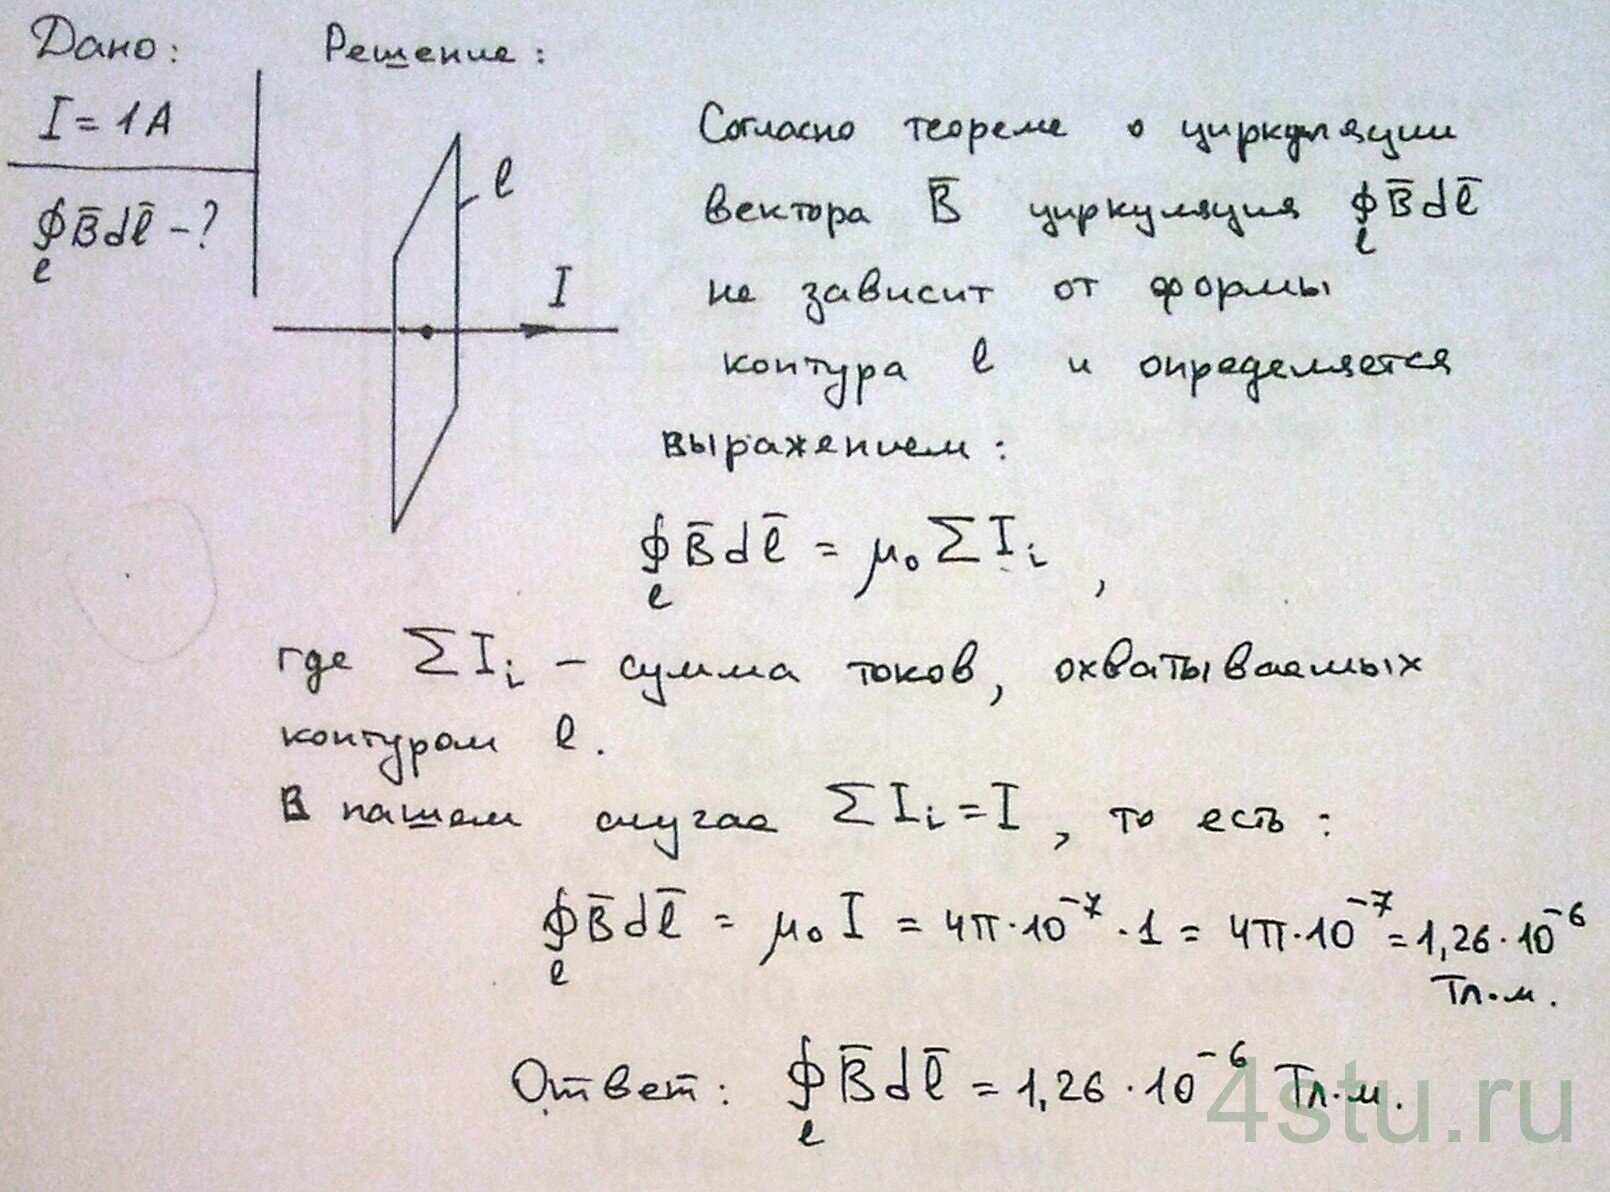 Дано:
I = 1А
∮ₗ B̄ dl̄ – ?
Решение:
l
I
Согласно теореме о циркуляции
вектора B̄ циркуляция ∮ₗ B̄ dl̄
не зависит от формы
контура l и определяется
выражением:
∮ₗ B̄ dl̄ = μ₀ Σ Iᵢ ,
где Σ Iᵢ – сумма токов, охватываемых
контуром l.
В нашем случае Σ Iᵢ = I , то есть:
∮ₗ B̄ dl̄ = μ₀ I = 4π·10⁻⁷·1 = 4π·10⁻⁷ = 1,26·10⁻⁶
Тл·м.
Ответ: ∮ₗ B̄ dl̄ = 1,26·10⁻⁶ Тл·м.
4stu.ru